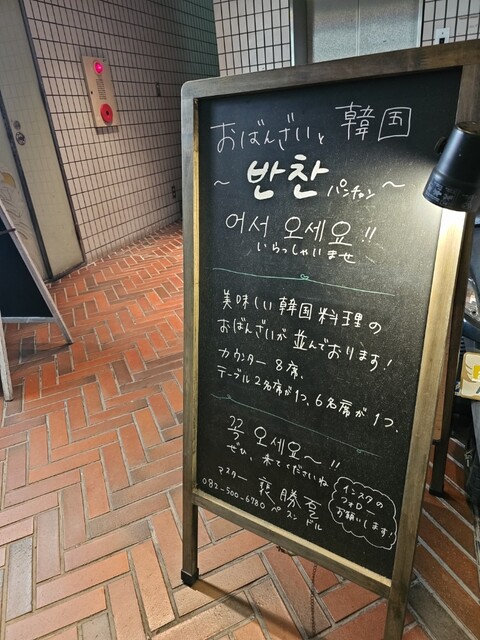 おばんざいと 韓国
～ 반찬 パンチャン ～
어서 오세요!!
いらっしゃいませ
美味しい韓国料理の
おばんざいが並んでおります!
カウンター 8席、
テーブル2名席が1つ、6名席が1つ、
꼭 오세요～!!
ぜひ、来てくださいね
マスター 裵 勝乭
082-500-6780 ペ スン ドル
インスタの
フォロー
お願いします!